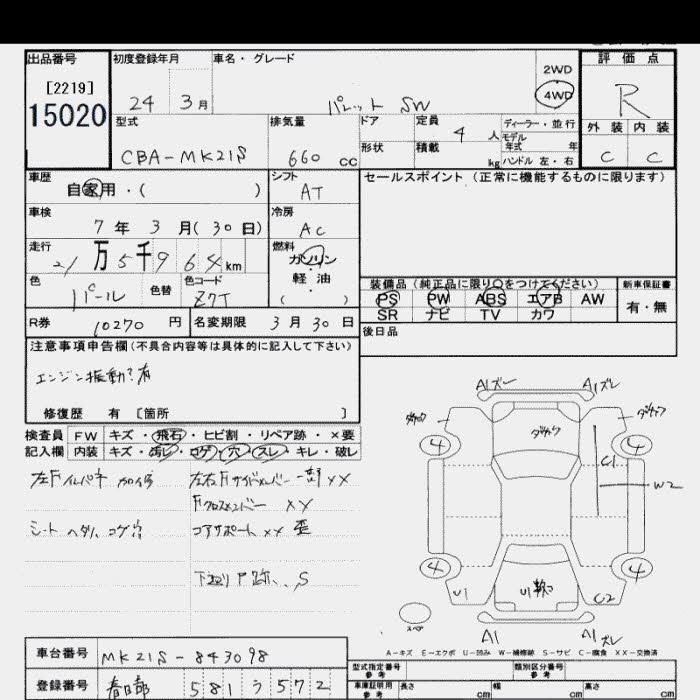 出品番号 初度登録年月 車名・グレード 評価点
[2219]
15020
24 3月 パレット SW
2WD
4WD
R
型式 排気量 ドア 定員 4人 ディーラー・並行 外装 内装
モデル
年式 年
CBA-MK21S 660 cc 形状 積載 kg ハンドル 左・右 C C
車歴 シフト セールスポイント(正常に機能するものに限ります)
自家用・( ) AT
車検 冷房
7年 3月(30日) AC
走行 燃料
万5千9 64km ガソリン
軽油
( )
色 色替 色コード
パール Z7T
装備品(純正品に限り○をつけてください) 新車保証書
PS PW ABS エアB AW 有・無
SR ナビ TV カワ
R券 10270円 名変期限 3月30日 後日品
注意事項申告欄(不具合内容等は具体的に記入して下さい)
エンジン振動?有
修復歴 有 [箇所 ]
検査員 FW キズ・飛石・ヒビ割・リペア跡・×要
記入欄 内装 キズ・汚レ・コゲ・穴・スレ・キレ・破レ
左Fインパネ 左右Fサイドメンバー 一部 XX
Fクロスメンバー XY
シート ヘタリ、コゲ穴 コアサポート XX 歪
S
A1ズレ A1ズレ
4 4
C1
W2
4 4
U1 C2
スペア A1 A1ズレ
A-キズ E-エクボ U-凹み W-補修跡 S-サビ C-腐食 XX-交換済
車台番号 MK21S-843098
登録番号 春日部 581 う 572
型式指定番号 参考 類別区分番号 参考
車庫証明用 参考 長さ cm 幅 cm 高さ cm